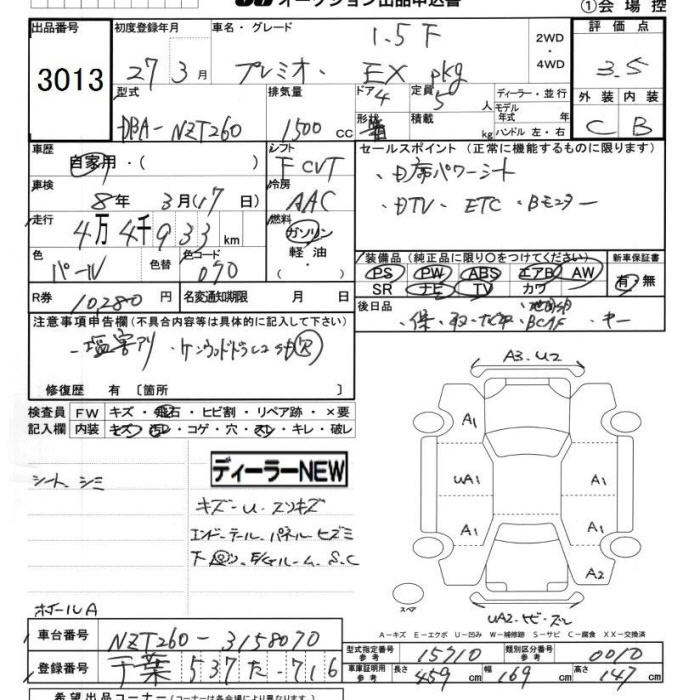 オークション出品申込書
①会場控
出品番号 初度登録年月 車名・グレード 評価点
3013 27年3月 プレミオ・ 1.5F EX pkg 2WD・4WD 3.5
型式 排気量 ドア 定員 ディーラー・並行 外装 内装
DBA-NZT260 1500cc 4 5人 モデル年式 年 C B
形状 積載 kg ハンドル 左・右
車歴 シフト セールスポイント (正常に機能するものに限ります)
自家用・( ) FCVT ・D席パワーシート
車検 冷房
8年 3月(17日) AAC ・DTV・ETC・Bモニター
走行 燃料
4万4千933km ガソリン・軽油・( )
色 色替 色コード 装備品(純正品に限り○をつけてください) 新車保証書
パール 070 PS PW ABS エアB AW 有・無
SR ナビ TV カワ
R券 10280円 名変通知期限 月 日 後日品
・保・取・ナビ・BCAF・キー
注意事項申告欄(不具合内容等は具体的に記入して下さい)
・塩害アリ・ケンウッドドラレコ
修復歴 有 〔箇所 〕
A3.U2
検査員 FW キズ・飛石・ヒビ割・リペア跡・×要
記入欄 内装 キズ・汚レ・コゲ・穴・スレ・キレ・破レ
A1
ディーラーNEW
シート、シミ
キズ-U・スリキズ
UA1 A1
エンド-テール・パネル-ヒズミ
A1 A1
ルーム.S.C
A2
ホイールA
スペア
UA2-
A-キズ E-エクボ U-凹み W-補修跡 S-サビ C-腐食 XX-交換済
車台番号 NZT260-3158070
型式指定番号 参考 15710 類別区分番号 参考 0010
登録番号 千葉 537 た 716
車庫証明用 参考 長さ 459cm 幅 169cm 高さ 147cm
希望出品コーナー(コーナーは各会場により